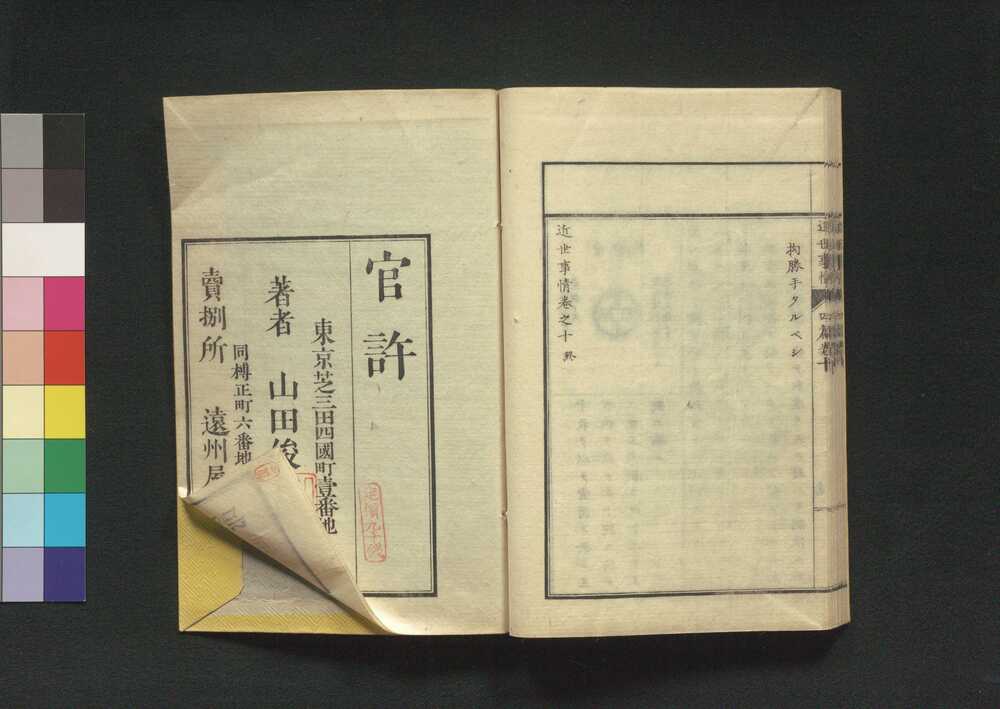 拘勝手タルベシ
近世事情巻之十 終
官許
東京芝三田四國町壹番地
著者 山田俊
同榑正町六番地
賣捌所 遠州屋
定價九十錢